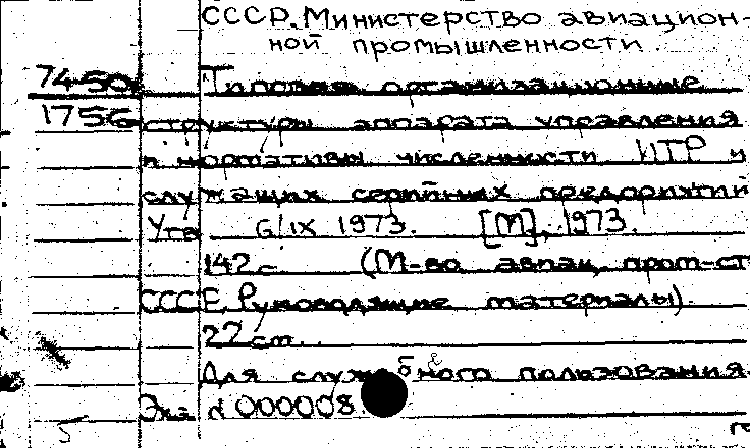 СССР. Министерство авиацион-
ной промышленности.
74-50
1756
Типовые организационные
структуры аппарата управления
и нормативы численности ИТР и
служащих серийных предприятий
Утв. 6/IX 1973. [М], 1973.
142 с. (М-во авиац. пром-сти
СССР. Руководящие материалы).
22 см.
Для служебного пользования
Экз. № 000008